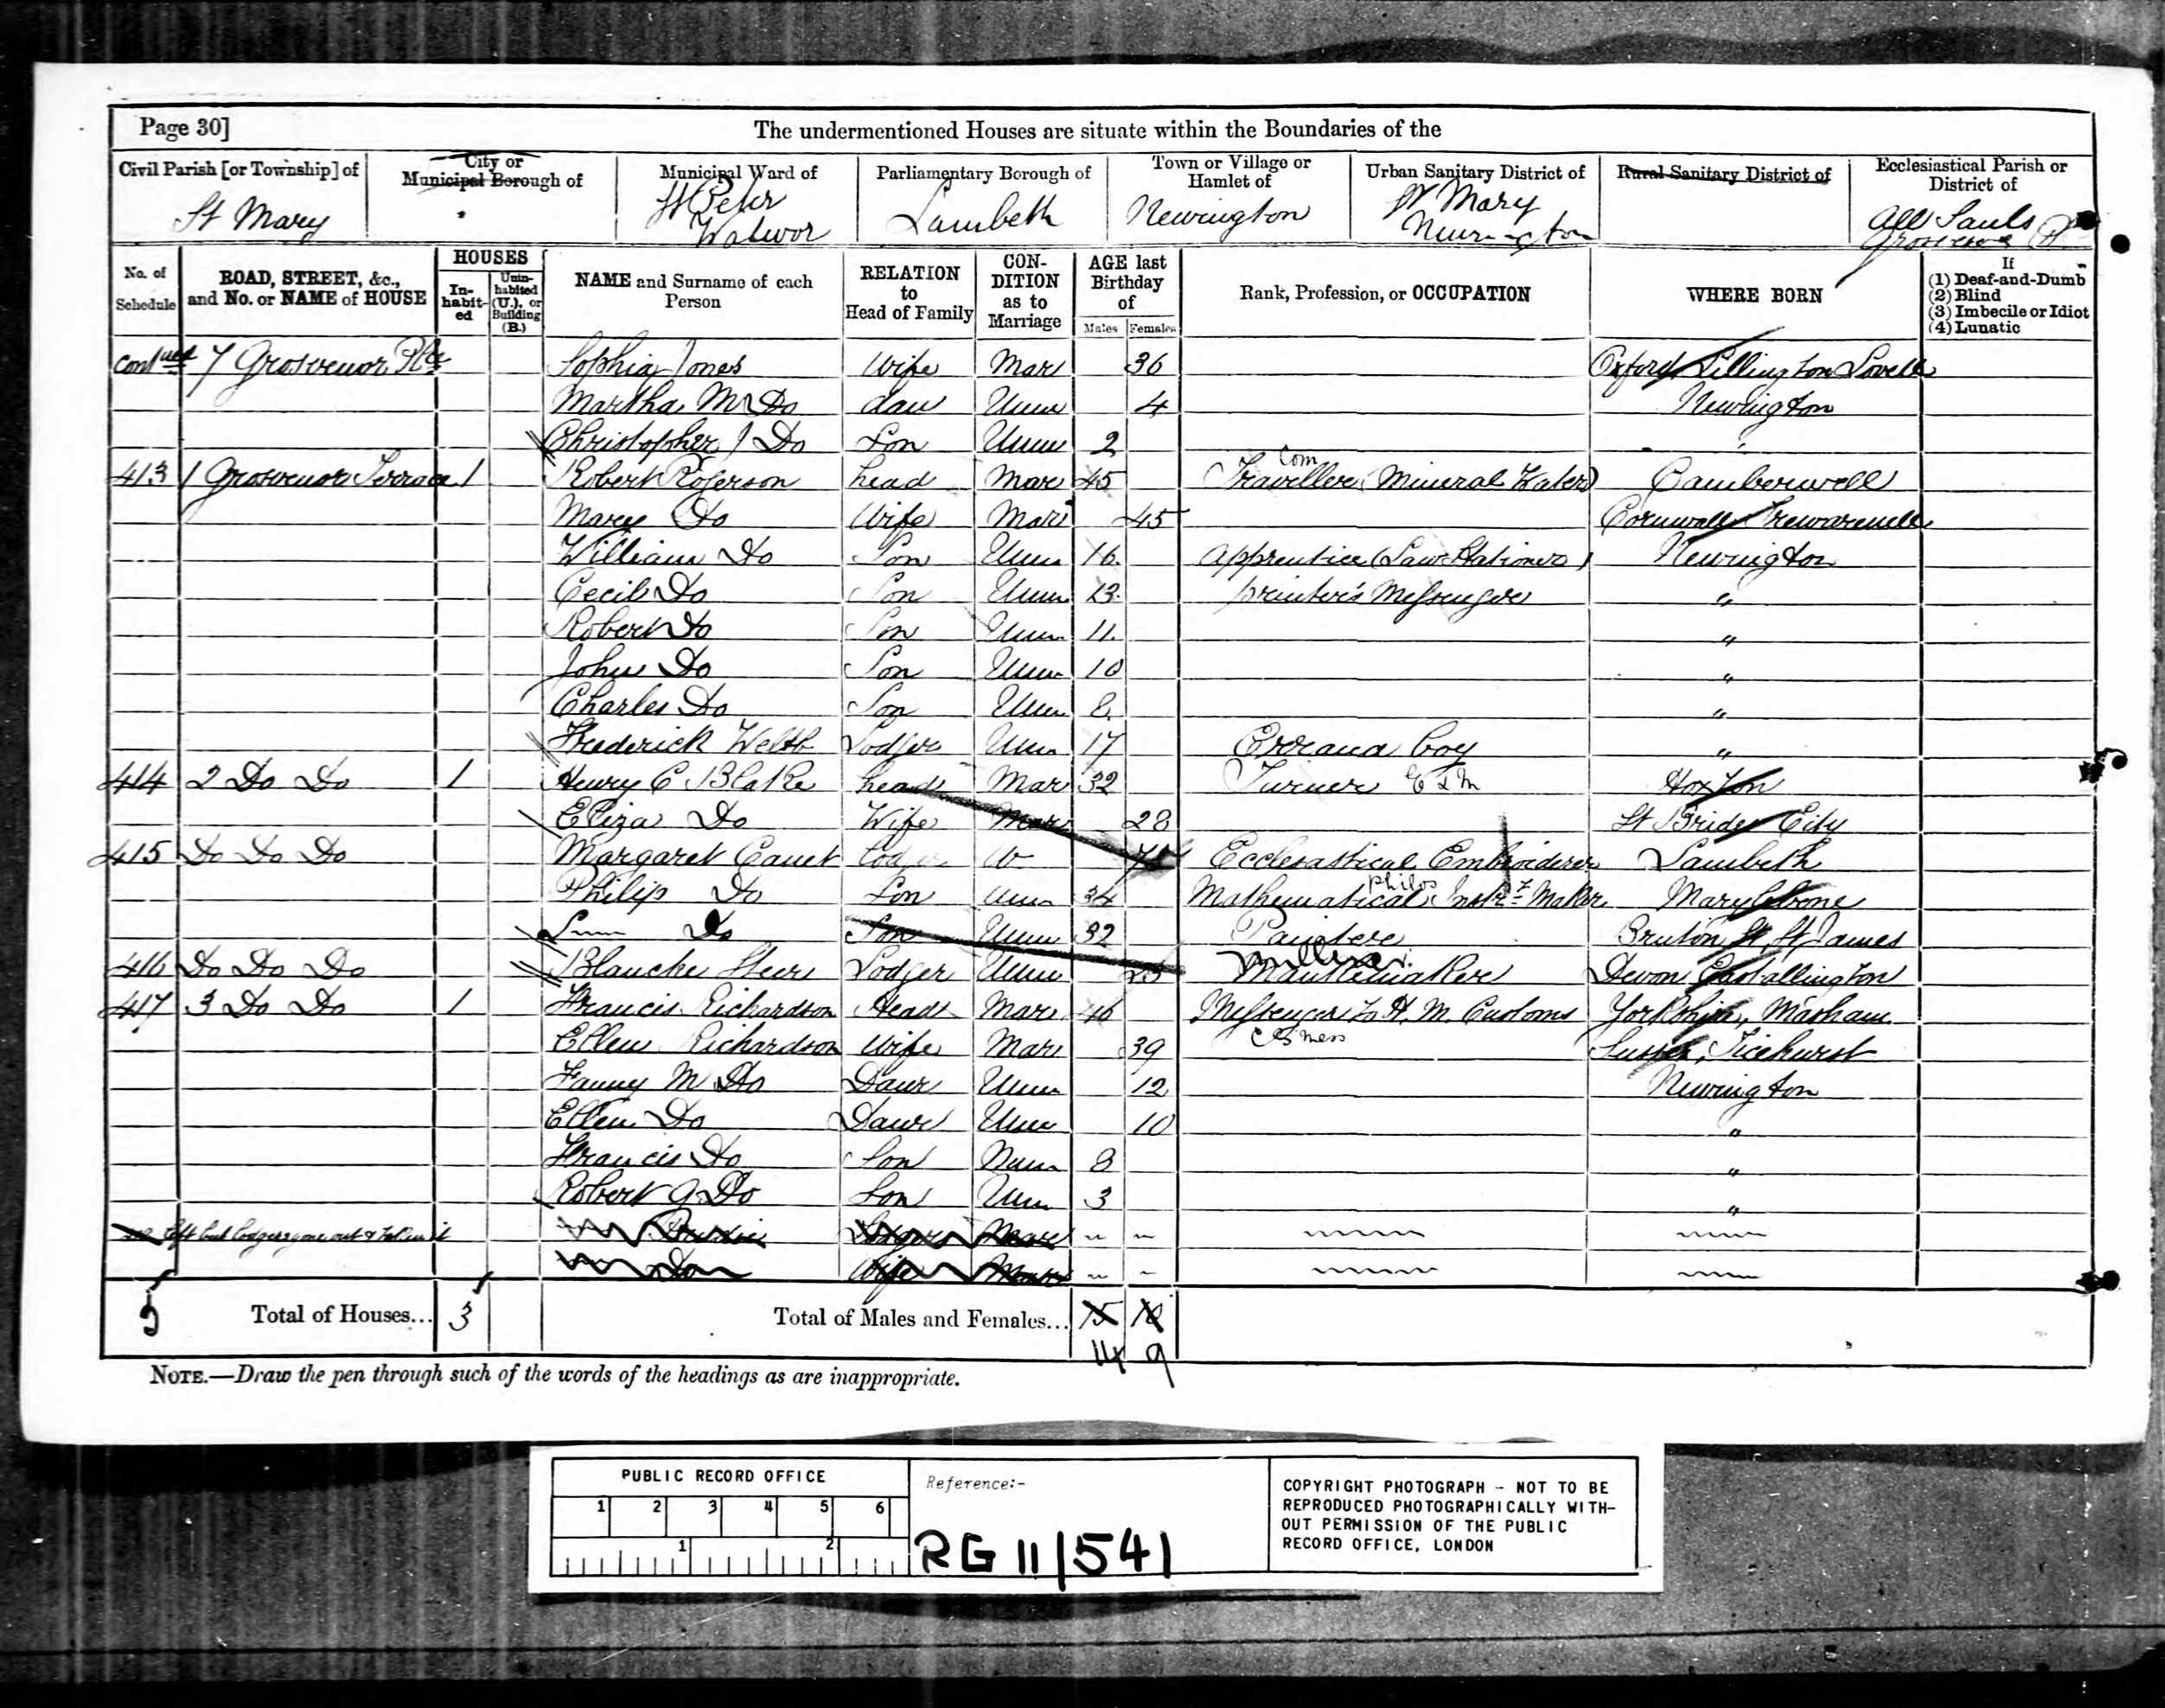 Page 30]
The undermentioned Houses are situate within the Boundaries of the
Civil Parish [or Township] of
City or Municipal Borough of
Municipal Ward of
Parliamentary Borough of
Town or Village or Hamlet of
Urban Sanitary District of
Rural Sanitary District of
Ecclesiastical Parish or District of
St Mary
St Peter Walwor
Lambeth
Newington
St Mary Newington
All Souls Grosvenor
No. of Schedule
ROAD, STREET, &c., and No. or NAME of HOUSE
HOUSES
In-habit-ed
Unin-habited (U.), or Building (B.)
NAME and Surname of each Person
RELATION to Head of Family
CON-DITION as to Marriage
AGE last Birthday of
Males Females
Rank, Profession, or OCCUPATION
WHERE BORN
If
(1) Deaf-and-Dumb
(2) Blind
(3) Imbecile or Idiot
(4) Lunatic
contued 7 Grosvenor Sophia Jones Wife Mar 36 Oxford Lillington Lovell
Martha M Do dau Unm 4 Newington
Christopher J Do Son Unm 2 "
413 1 Grosvenor Terrace 1 Robert Rogerson head Mar 45 Com Traveller (Mineral Water) Camberwell
Mary Do Wife Mar 45 Cornwall
William Do Son Unm 16 Apprentice (Law Stationer) Newington
Cecil Do Son Unm 13 printer's Messenger "
Robert Do Son Unm 11 "
John Do Son Unm 10 "
Charles Do Son Unm 8 "
Frederick Lodger Unm 17 Errand boy "
414 2 Do Do 1 Henry C Blake head Mar 32 Turner E & M Hoxton
Eliza Do Wife Mar 28 St Brides City
415 Do Do Do Margaret Lodger W Ecclesastical Embroiderer Lambeth
Philip Do Son Unm 34 Mathematical philos Instr Maker Marylebone
Do Son Unm 32 Painter Bruton St St James
416 Do Do Do Blanche Steer Lodger Unm Mantlemaker Milliner Devon East allington
417 3 Do Do 1 Francis Richardson Head Mar 46 Messenger to H. M. Customs Yorkshire, Masham
Ellen Richardson Wife Mar 39 C S mess Sussex, Ticehurst
Fanny M Do Daur Unm 12 Newington
Ellen Do Daur Unm 10 "
Francis Do Son Unm 8 "
Robert G Do Son Unm 3 "
Lodger Mar
Do Wife Mar
3 Total of Houses... 3 Total of Males and Females... 15 10
14 9
NOTE.—Draw the pen through such of the words of the headings as are inappropriate.
PUBLIC RECORD OFFICE
1 2 3 4 5 6
1 2
Reference:-
RG 11/541
COPYRIGHT PHOTOGRAPH - NOT TO BE
REPRODUCED PHOTOGRAPHICALLY WITH-
OUT PERMISSION OF THE PUBLIC
RECORD OFFICE, LONDON